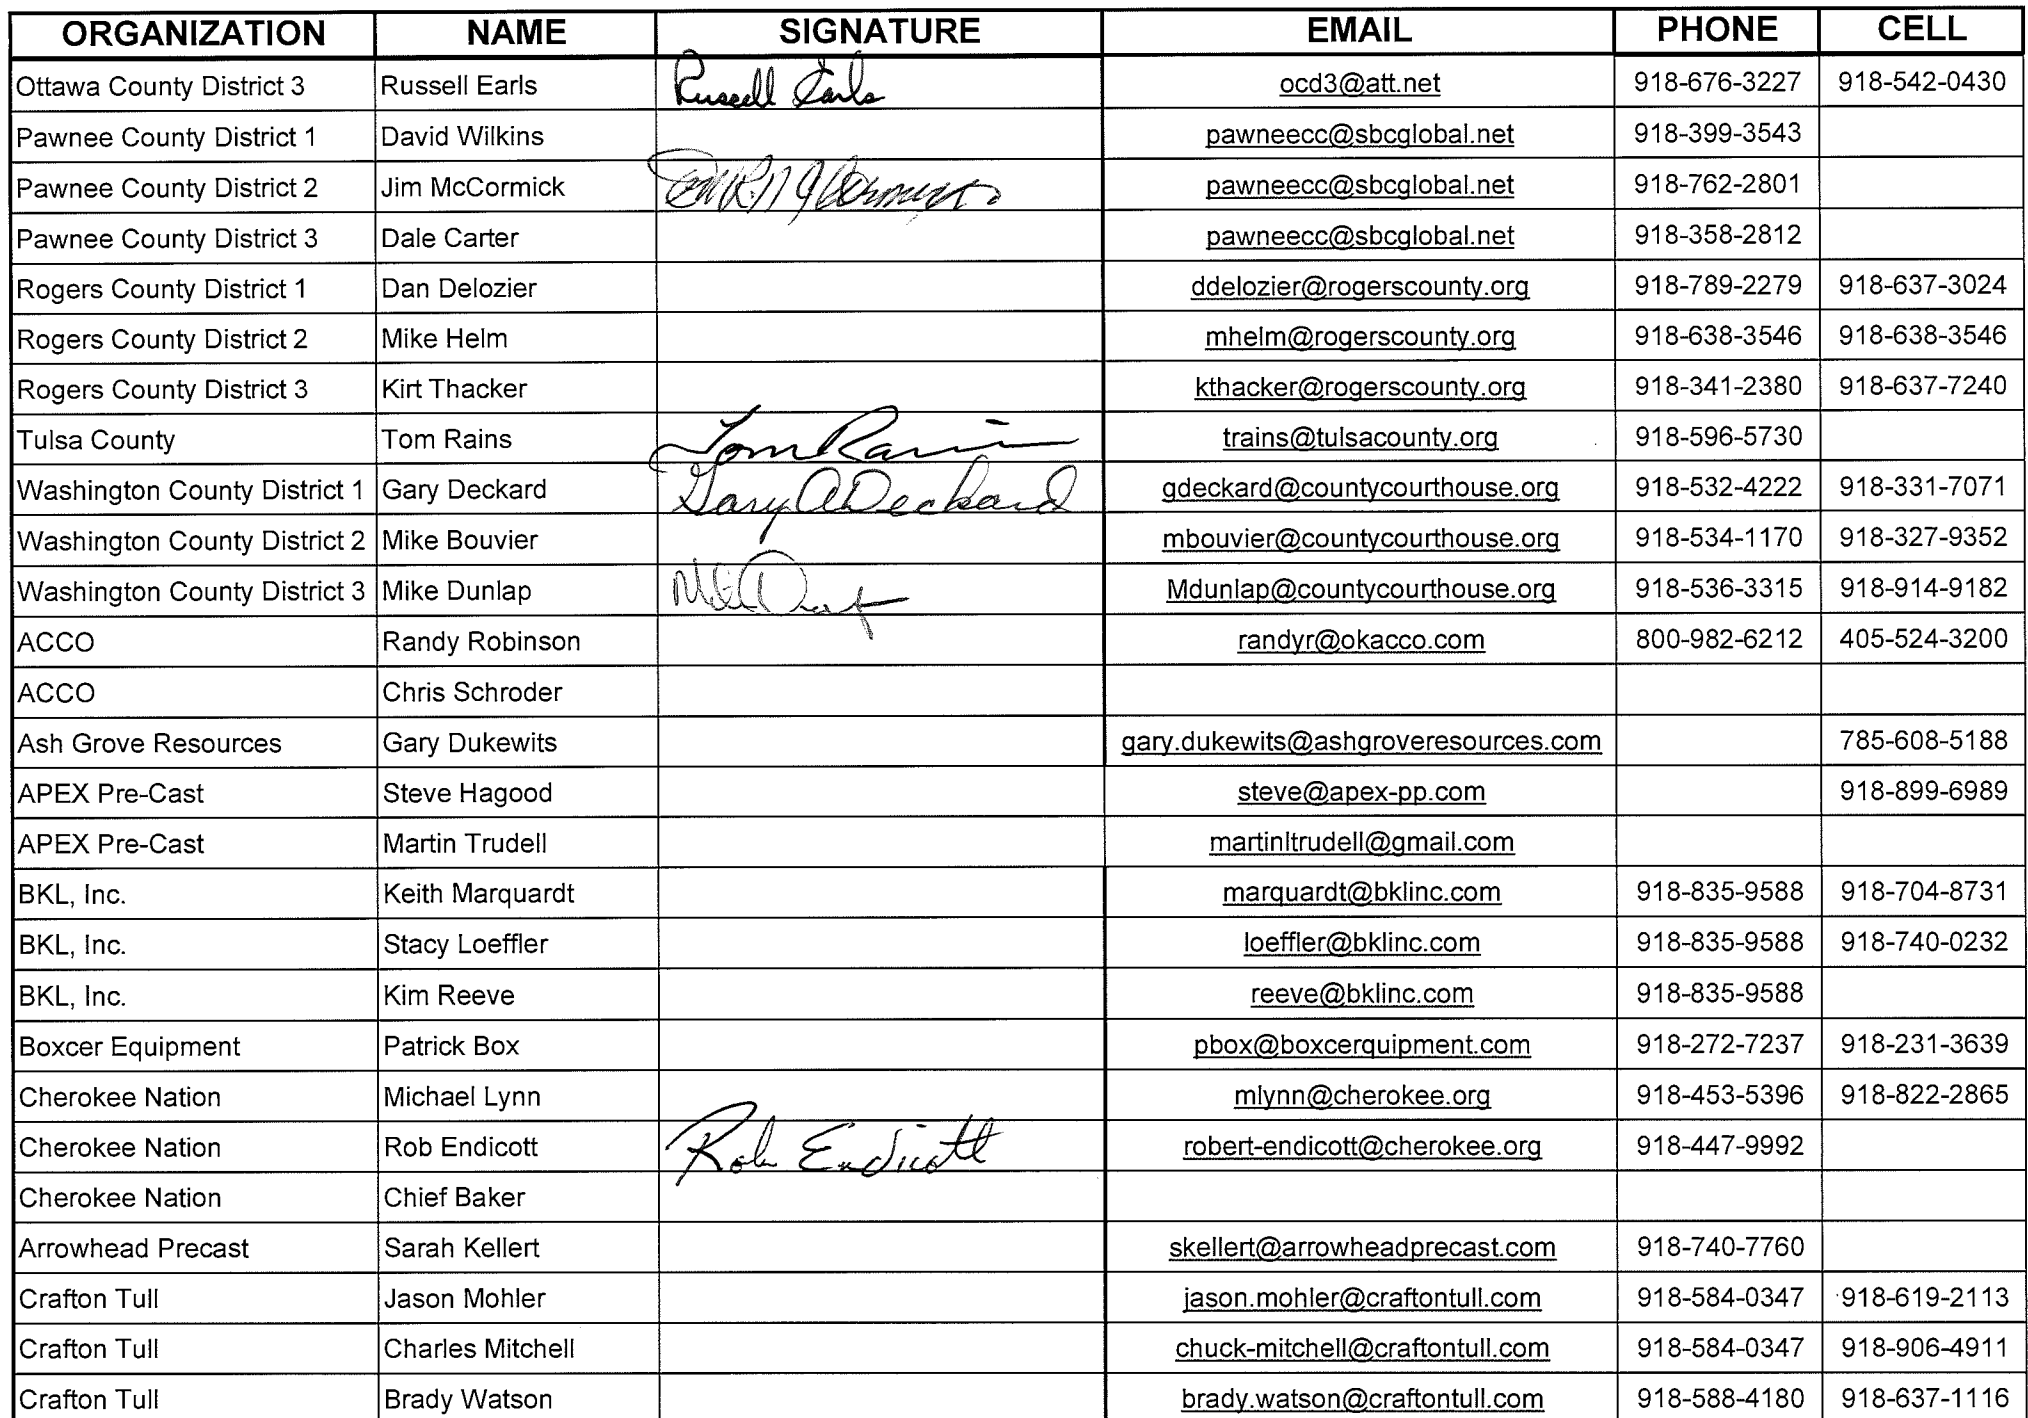 ORGANIZATION NAME SIGNATURE EMAIL PHONE CELL
Ottawa County District 3 Russell Earls Russell Earls ocd3@att.net 918-676-3227 918-542-0430
Pawnee County District 1 David Wilkins pawneecc@sbcglobal.net 918-399-3543
Pawnee County District 2 Jim McCormick pawneecc@sbcglobal.net 918-762-2801
Pawnee County District 3 Dale Carter pawneecc@sbcglobal.net 918-358-2812
Rogers County District 1 Dan Delozier ddelozier@rogerscounty.org 918-789-2279 918-637-3024
Rogers County District 2 Mike Helm mhelm@rogerscounty.org 918-638-3546 918-638-3546
Rogers County District 3 Kirt Thacker kthacker@rogerscounty.org 918-341-2380 918-637-7240
Tulsa County Tom Rains Tom Rains trains@tulsacounty.org 918-596-5730
Washington County District 1 Gary Deckard Gary A Deckard gdeckard@countycourthouse.org 918-532-4222 918-331-7071
Washington County District 2 Mike Bouvier mbouvier@countycourthouse.org 918-534-1170 918-327-9352
Washington County District 3 Mike Dunlap Mdunlap@countycourthouse.org 918-536-3315 918-914-9182
ACCO Randy Robinson randyr@okacco.com 800-982-6212 405-524-3200
ACCO Chris Schroder
Ash Grove Resources Gary Dukewits gary.dukewits@ashgroveresources.com 785-608-5188
APEX Pre-Cast Steve Hagood steve@apex-pp.com 918-899-6989
APEX Pre-Cast Martin Trudell martinltrudell@gmail.com
BKL, Inc. Keith Marquardt marquardt@bklinc.com 918-835-9588 918-704-8731
BKL, Inc. Stacy Loeffler loeffler@bklinc.com 918-835-9588 918-740-0232
BKL, Inc. Kim Reeve reeve@bklinc.com 918-835-9588
Boxcer Equipment Patrick Box pbox@boxcerquipment.com 918-272-7237 918-231-3639
Cherokee Nation Michael Lynn mlynn@cherokee.org 918-453-5396 918-822-2865
Cherokee Nation Rob Endicott Rob Endicott robert-endicott@cherokee.org 918-447-9992
Cherokee Nation Chief Baker
Arrowhead Precast Sarah Kellert skellert@arrowheadprecast.com 918-740-7760
Crafton Tull Jason Mohler jason.mohler@craftontull.com 918-584-0347 918-619-2113
Crafton Tull Charles Mitchell chuck-mitchell@craftontull.com 918-584-0347 918-906-4911
Crafton Tull Brady Watson brady.watson@craftontull.com 918-588-4180 918-637-1116